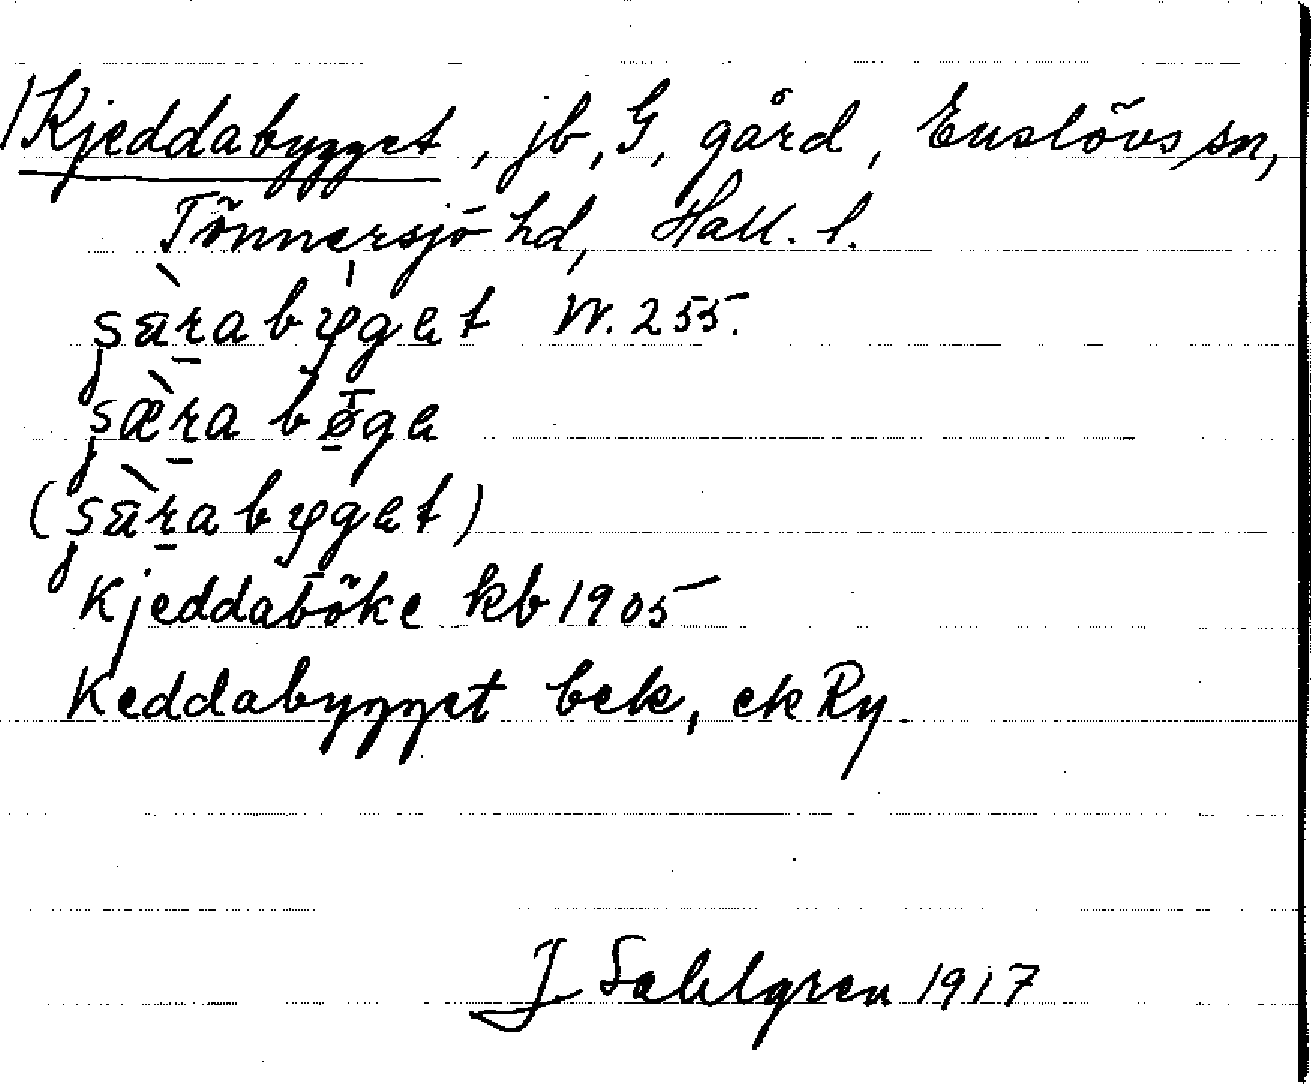 /Kjeddabygget, jb, G, gård, Enslövs sn,
Tönnersjö hd, Hall. l.
ʂæ̀rabyget W. 255.
ʂæ̀rabøge
(ʂæ̀rabyget)
Kjeddaböke kb 1905
Keddabygget bek, ek Ry
J Sahlgren 1917